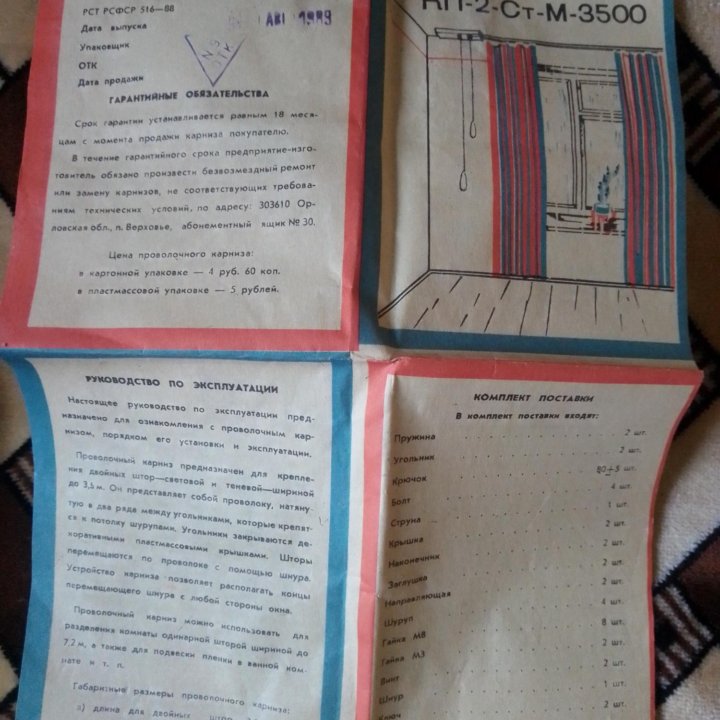 РСТ РСФСР 516—88
Дата выпуска АВГ 1989
Упаковщик
ОТК
Дата продажи
ГАРАНТИЙНЫЕ ОБЯЗАТЕЛЬСТВА
Срок гарантии устанавливается равным 18 меся-
цам с момента продажи карниза покупателю.
В течение гарантийного срока предприятие-изго-
товитель обязано произвести безвозмездный ремонт
или замену карнизов, не соответствующих требова-
ниям технических условий, по адресу: 303610 Ор-
ловская обл., п. Верховье, абонементный ящик № 30.
Цена проволочного карниза:
в картонной упаковке — 4 руб. 60 коп.
в пластмассовой упаковке — 5 рублей.
КП-2-Ст-М-3500
РУКОВОДСТВО ПО ЭКСПЛУАТАЦИИ
Настоящее руководство по эксплуатации пред-
назначено для ознакомления с проволочным кар-
низом, порядком его установки и эксплуатации.
Проволочный карниз предназначен для крепле-
ния двойных штор—световой и теневой—шириной
до 3,5 м. Он представляет собой проволоку, натяну-
тую в два ряда между угольниками, которые крепят-
ся к потолку шурупами. Угольники закрываются де-
коративными пластмассовыми крышками. Шторы
перемещаются по проволоке с помощью шнура.
Устройство карниза позволяет располагать концы
перемещающего шнура с любой стороны окна.
Проволочный карниз можно использовать для
разделения комнаты одинарной шторой шириной до
7,2 м, а также для подвески пленки в ванной ком-
нате и т. п.
Габаритные размеры проволочного карниза:
а) длина для двойных штор
КОМПЛЕКТ ПОСТАВКИ
В комплект поставки входят:
Пружина 2 шт.
Угольник 2 шт.
Крючок 80±5 шт.
Болт 4 шт.
Струна 1 шт.
Крышка 2 шт.
Наконечник 2 шт.
Заглушка 2 шт.
Направляющая 2 шт.
Шуруп 4 шт.
Гайка М8 8 шт.
Гайка М3 2 шт.
Винт 2 шт.
Шнур 1 шт.
Ключ